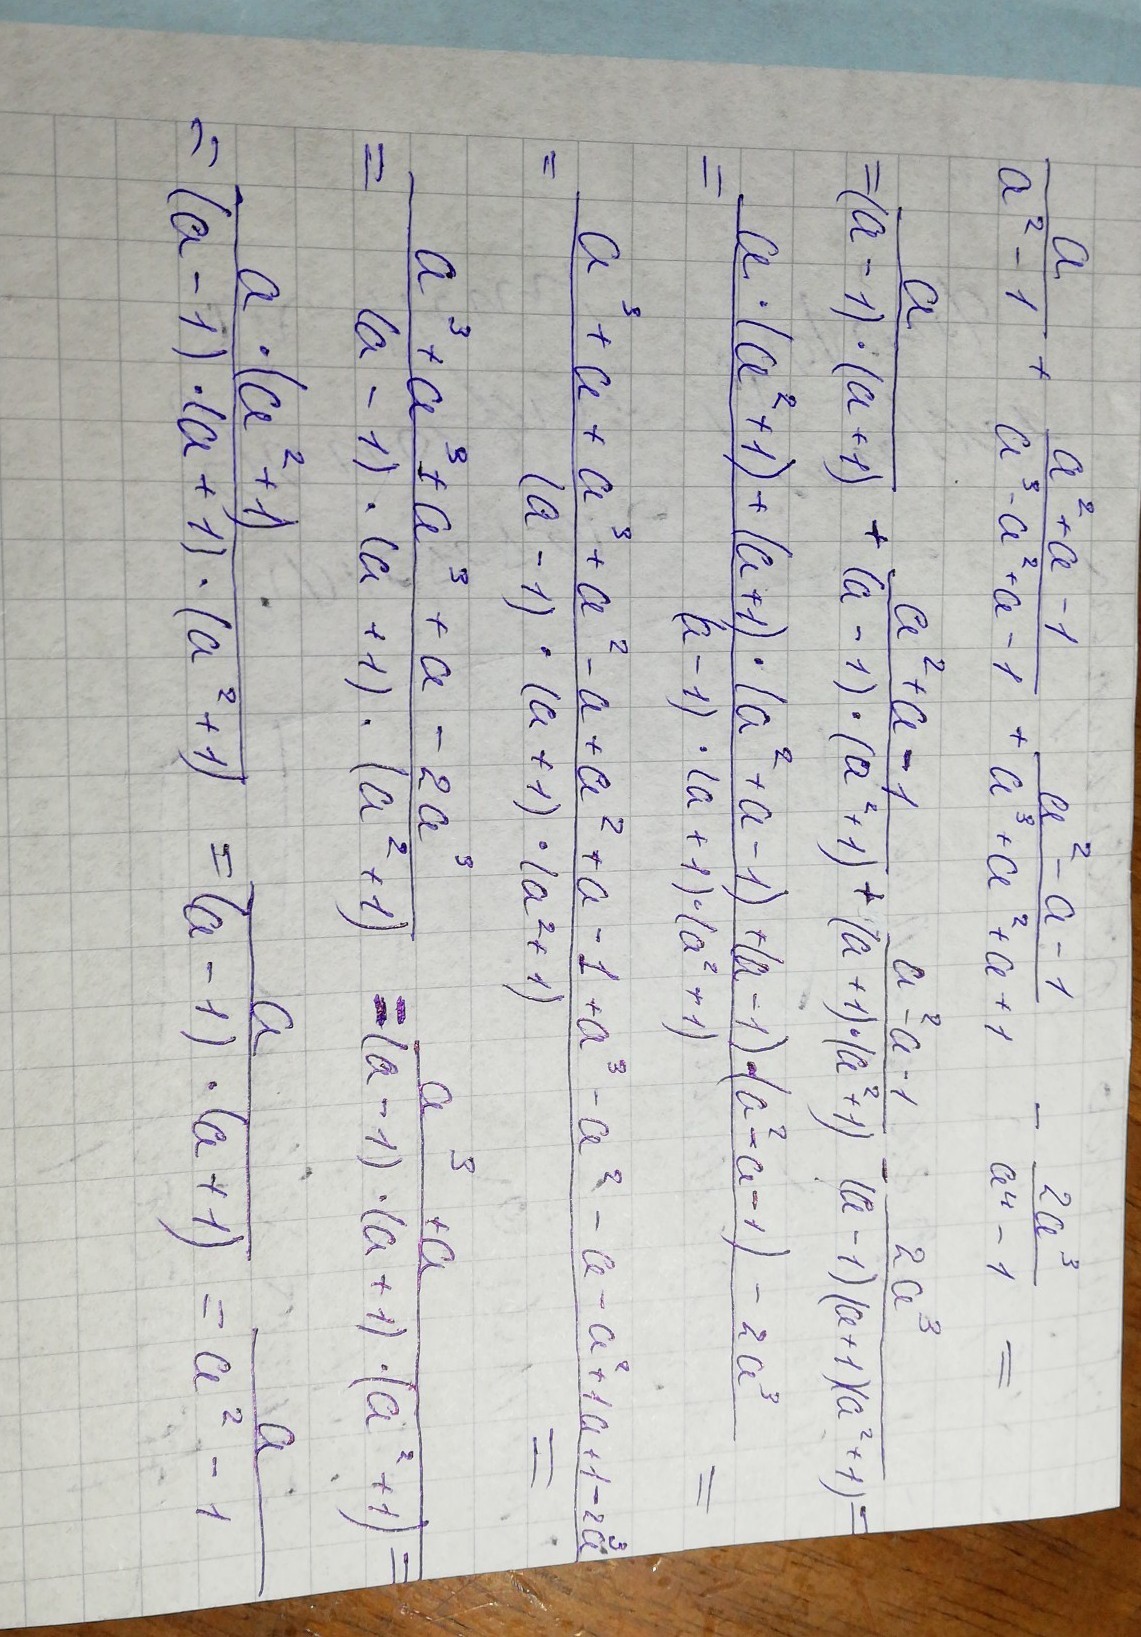 a/(a²-1) + (a²+a-1)/(a³-a²+a-1) + (a²-a-1)/(a³+a²+a+1) - 2a³/(a⁴-1) =
= a/((a-1)·(a+1)) + (a²+a-1)/((a-1)·(a²+1)) + (a²-a-1)/((a+1)·(a²+1)) - 2a³/((a-1)(a+1)(a²+1)) =
= (a·(a²+1)+(a+1)·(a²+a-1)+(a-1)·(a²-a-1)-2a³)/((a-1)·(a+1)·(a²+1)) =
= (a³+a+a³+a²-a+a²+a-1+a³-a²-a-a²+1a+1-2a³)/((a-1)·(a+1)·(a²+1)) =
= (a³+a³+a³+a-2a³)/((a-1)·(a+1)·(a²+1)) = (a³+a)/((a-1)·(a+1)·(a²+1)) =
= (a·(a²+1))/((a-1)·(a+1)·(a²+1)) = a/((a-1)·(a+1)) = a/(a²-1)